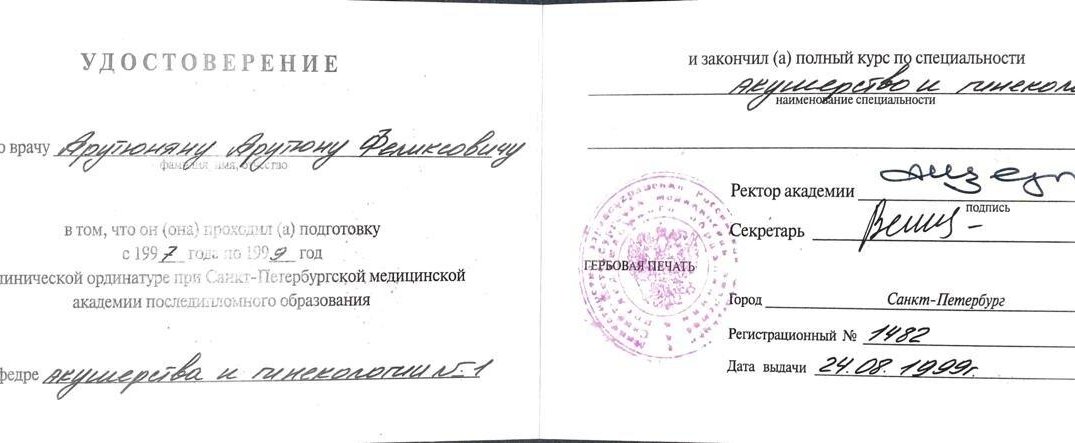 УДОСТОВЕРЕНИЕ
о врачу Арутюняну Арутюну Феликсовичу
фамилия имя, отчество
в том, что он (она) проходил (а) подготовку
с 1997 года по 1999 год
линической ординатуре при Санкт-Петербургской медицинской
академии последипломного образования
федре акушерства и гинекологии №1
и закончил (а) полный курс по специальности
акушерство и гинекол
наименование специальности
Ректор академии
подпись
Секретарь
ГЕРБОВАЯ ПЕЧАТЬ
Город Санкт-Петербург
Регистрационный № 1482
Дата выдачи 24.08.1999г.